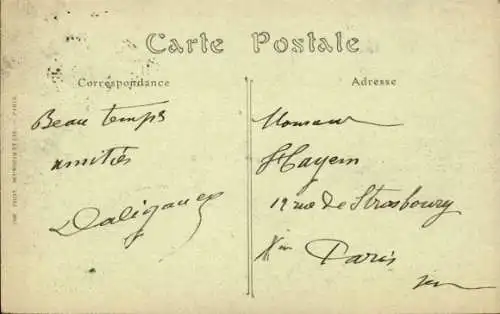 Carte Postale
Correspondance
Adresse
Beau temps
amitiés
Monsieur
Hayem
12 rue de Strasbourg
Xme Paris